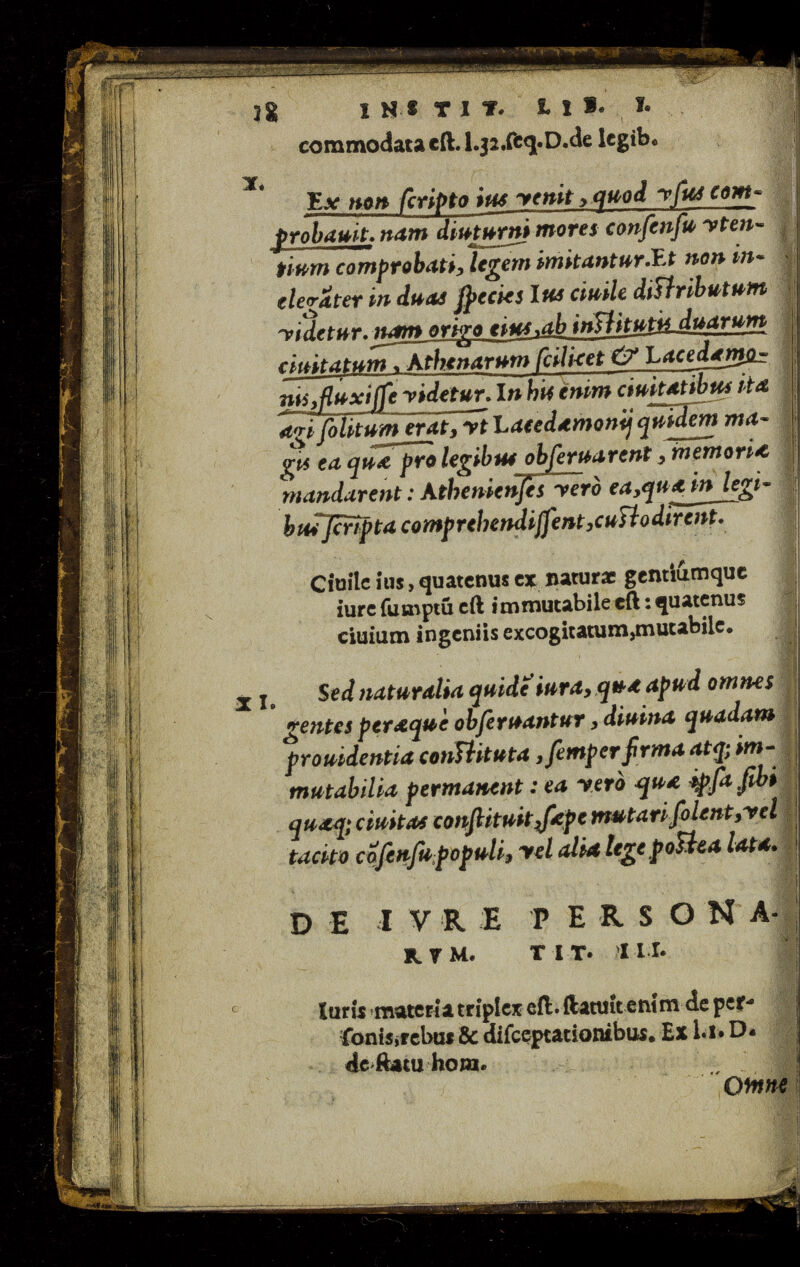 18 INSTIT. LIB. I.
commodata eſt. l.32.ſeq.D.de legib.
X.
Ex non ſcripto ius venit, quod vſus com-
probauit. nam diuturni mores conſenſu vten-
tium comprobati, legem imitantur.Et non in-
elegāter in duas ſpecies Ius ciuile diſtributum
videtur. nam origo eius,ab inſtitutis duarum
ciuitatum, Athenarum ſcilicet & Lacedæmo-
nis,fluxiſſe videtur. In his enim ciuitatibus ita
agi ſolitum erat, vt Lacedæmonij quidem ma-
gis ea quæ pro legibus obſeruarent, memoriæ
mandarent: Athenienſes verò ea,quæ in legi-
bus ſcripta comprehendiſſent,cuſtodirent.
Ciuile ius, quatenus ex naturæ gentiúmque
iure ſumptũ eſt immutabile eſt: quatenus
ciuium ingeniis excogitatum,mutabile.
XI.
Sed naturalia quidē iura, quæ apud omnes
gentes peræquè obſeruantur, diuina quadam
prouidentia conſtituta, ſemper firma atq; im-
mutabilia permanent: ea verò quæ ipſa ſibi
quæq; ciuitas conſtituit,ſæpe mutari ſolent,vel
tacito cōſenſu populi, vel alia lege poſtea lata.
DE IVRE PERSONA-
RVM. TIT. III.
Iuris materia triplex eſt. ſtatuit enim de per-
ſonis,rebus & diſceptationibus. Ex l.1. D.
de ſtatu hom.
Omne